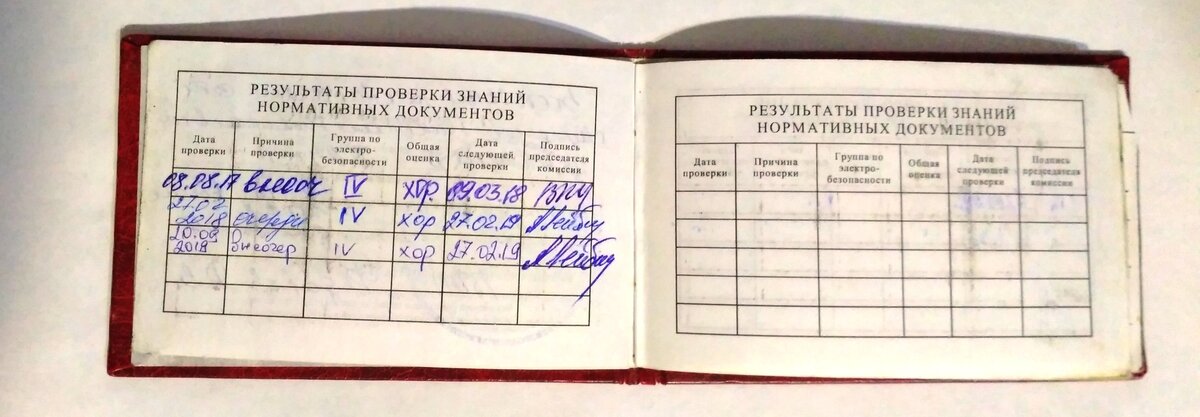 РЕЗУЛЬТАТЫ ПРОВЕРКИ ЗНАНИЙ
НОРМАТИВНЫХ ДОКУМЕНТОВ
Дата проверки Причина проверки Группа по электро-безопасности Общая оценка Дата следующей проверки Подпись председателя комиссии
08.08.17 внеоч IV хор. 09.03.18
27.02 2018 очеред IV хор 27.02.19
10.09 2018 Внеочер IV хор 27.02.19
РЕЗУЛЬТАТЫ ПРОВЕРКИ ЗНАНИЙ
НОРМАТИВНЫХ ДОКУМЕНТОВ
Дата проверки Причина проверки Группа по электро-безопасности Общая оценка Дата следующей проверки Подпись председателя комиссии